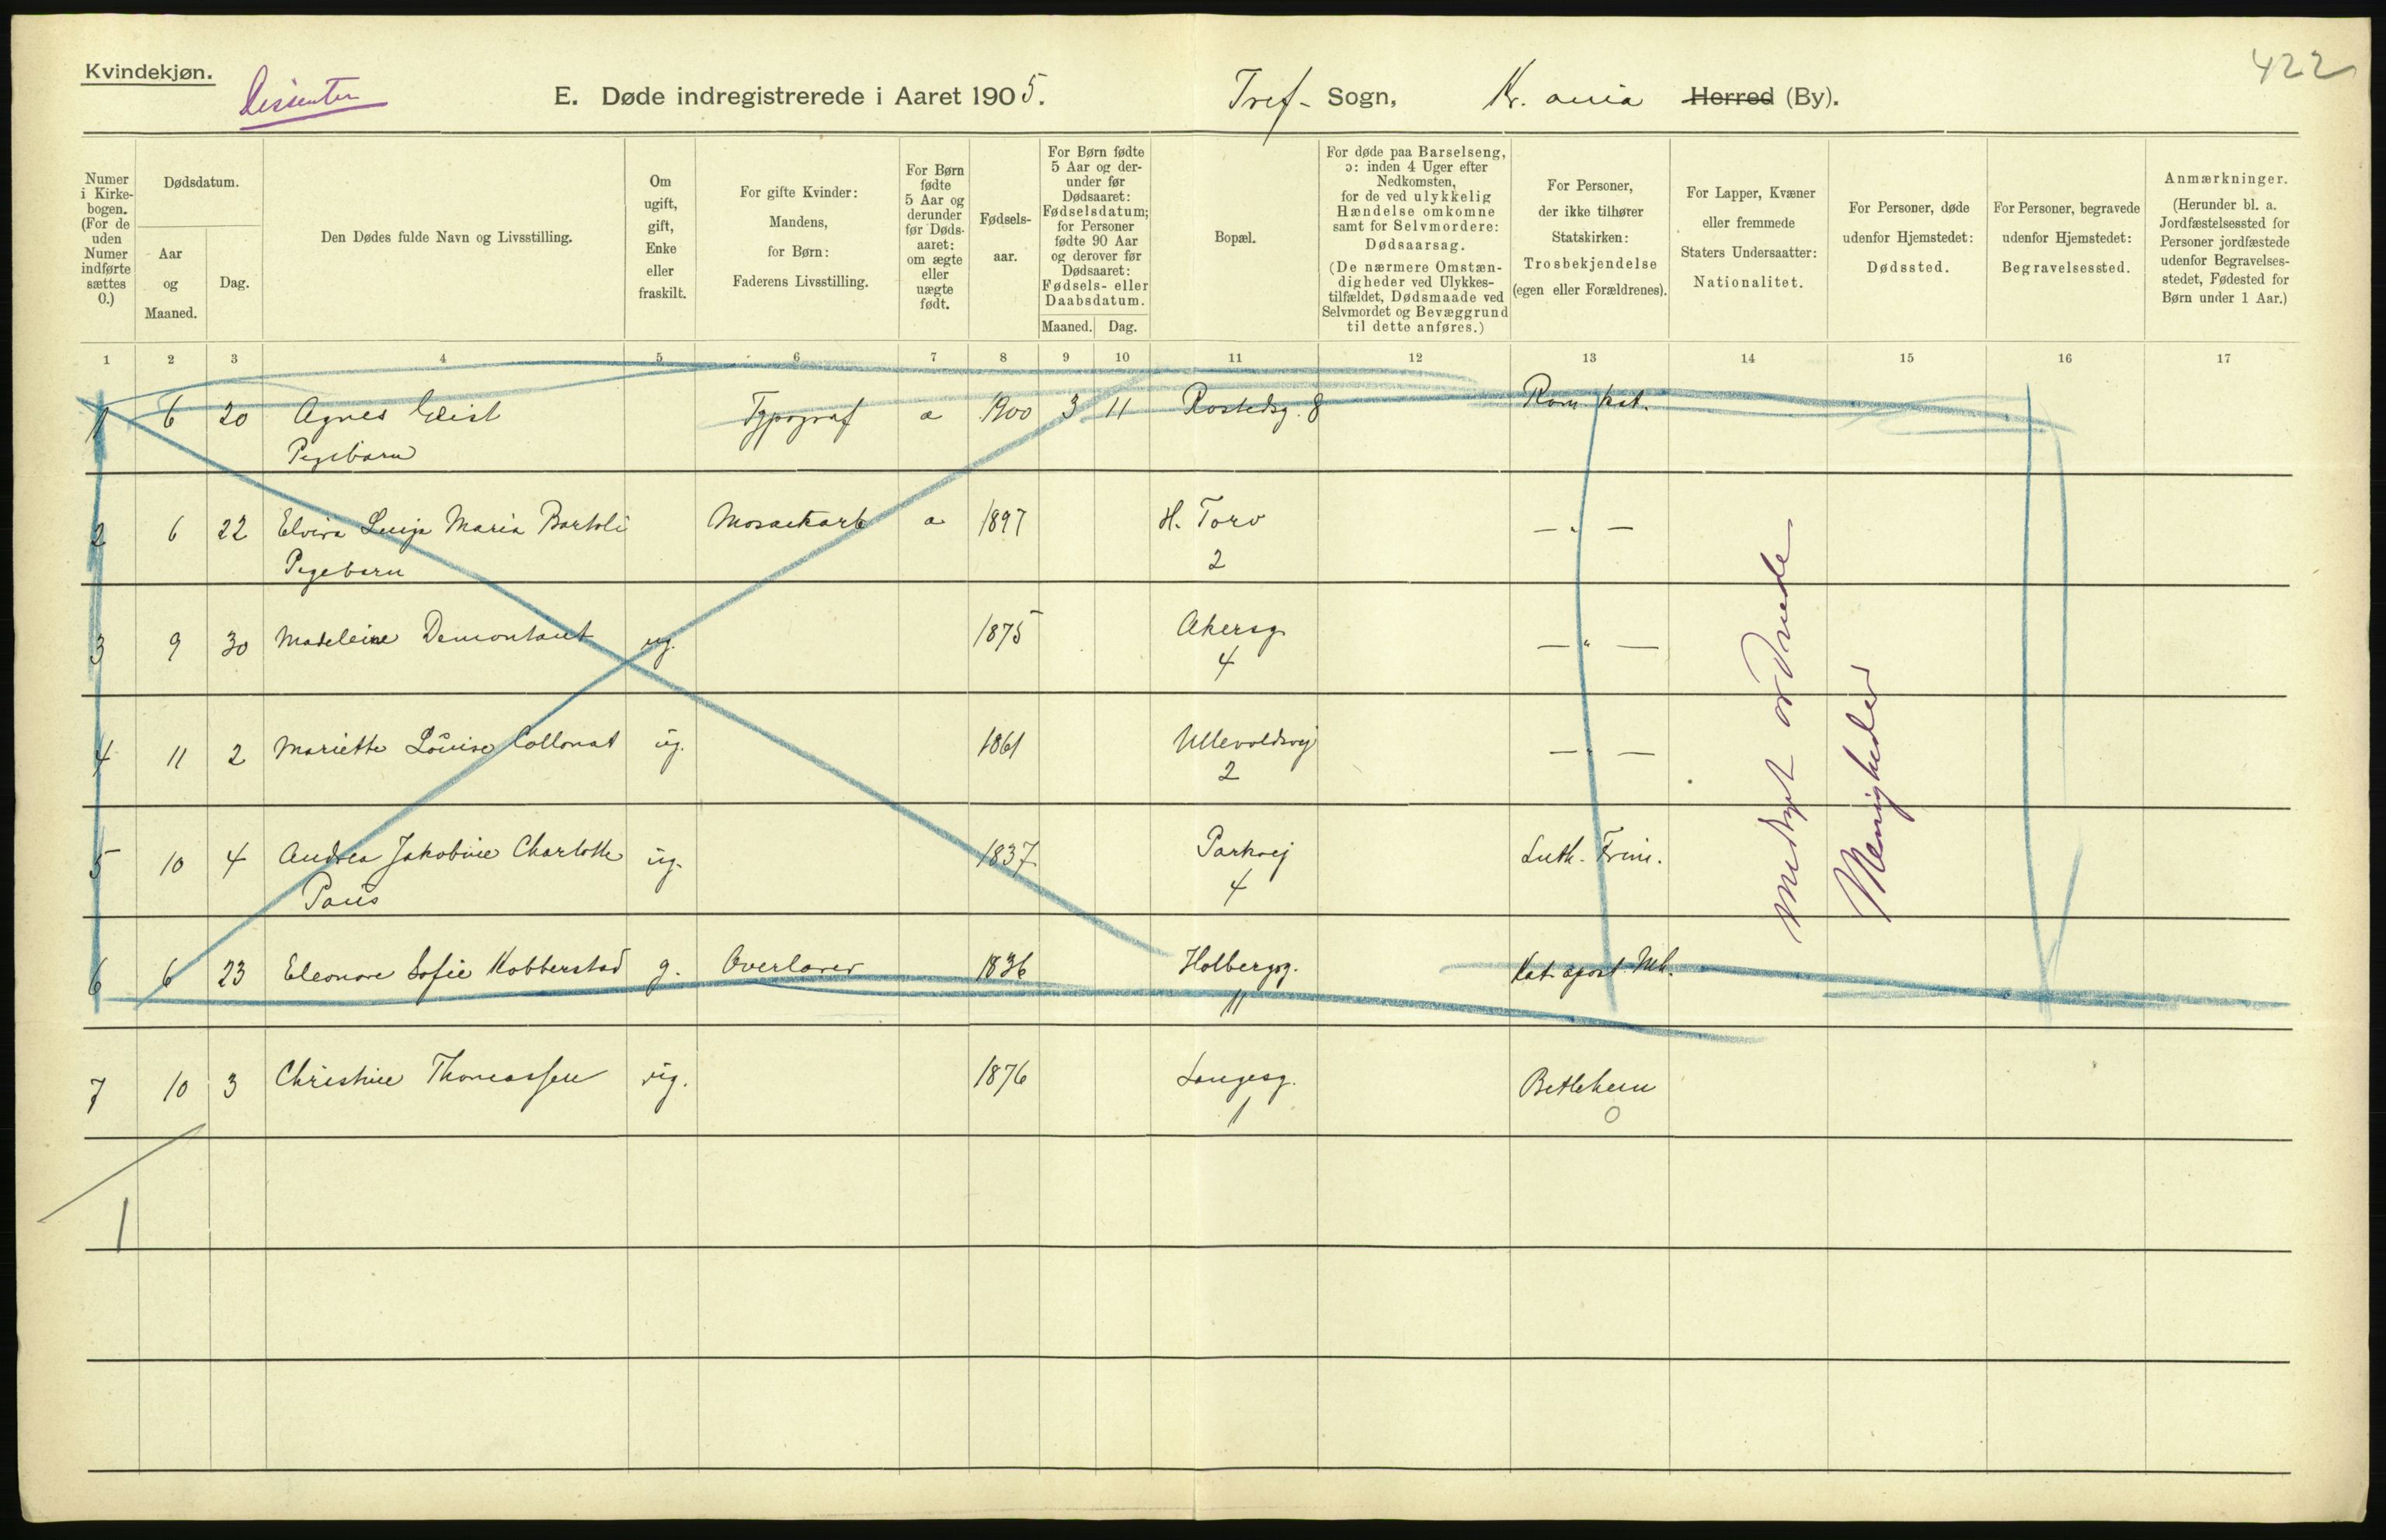 Kvindekjøn.
Dissenter
E. Døde indregistrerede i Aaret 1905.
Tref- Sogn, Kr. ania Herred (By).
422
Numer i Kirkebogen. (For de uden Numer indførte sættes 0.)
Dødsdatum.
Aar og Maaned.
Dag.
Den Dødes fulde Navn og Livsstilling.
Om ugift, gift, Enke eller fraskilt.
For gifte Kvinder: Mandens, for Børn: Faderens Livsstilling.
For Børn fødte 5 Aar og derunder før Dødsaaret: om ægte eller uægte født.
Fødselsaar.
For Børn fødte 5 Aar og derunder før Dødsaaret: Fødselsdatum; for Personer fødte 90 Aar og derover før Dødsaaret: Fødsels- eller Daabsdatum.
Maaned. Dag.
Bopæl.
For døde paa Barselseng, ɔ: inden 4 Uger efter Nedkomsten, for de ved ulykkelig Hændelse omkomne samt for Selvmordere: Dødsaarsag. (De nærmere Omstændigheder ved Ulykkestilfældet, Dødsmaade ved Selvmordet og Bevæggrund til dette anføres.)
For Personer, der ikke tilhører Statskirken: Trosbekjendelse (egen eller Forældrenes).
For Lapper, Kvæner eller fremmede Staters Undersaatter: Nationalitet.
For Personer, døde udenfor Hjemstedet: Dødssted.
For Personer, begravede udenfor Hjemstedet: Begravelsessted.
Anmærkninger. (Herunder bl. a. Jordfæstelsessted for Personer jordfæstede udenfor Begravelsesstedet, Fødested for Børn under 1 Aar.)
1 2 3 4 5 6 7 8 9 10 11 12 13 14 15 16 17
1 6 20 Agnes Geist Typograf a 1900 3 11 Rostedsg. 8 Rom kat.
Pigebarn
2 6 22 Elvira Luigia Maria Bartoli Mosaikarb a 1897 H. Torv — " —
Pigebarn 2
3 9 30 Madeleine Demontant ug. 1875 Akersg. — " —
4
4 11 2 Mariette Louise Collonat ug. 1861 Ullevoldsvej — " —
2
5 10 4 Andrea Jakobine Charlotte ug. 1837 Parkvej Luth. Frim.
Paus 4
6 6 23 Eleonore Sofie Kobberstad g. Overlærer 1836 Holbergsg. Kat. apost. Mh.
11
7 10 3 Christine Thomassen ug. 1876 Langesg. Betlehem
1 0
1
Menigheder